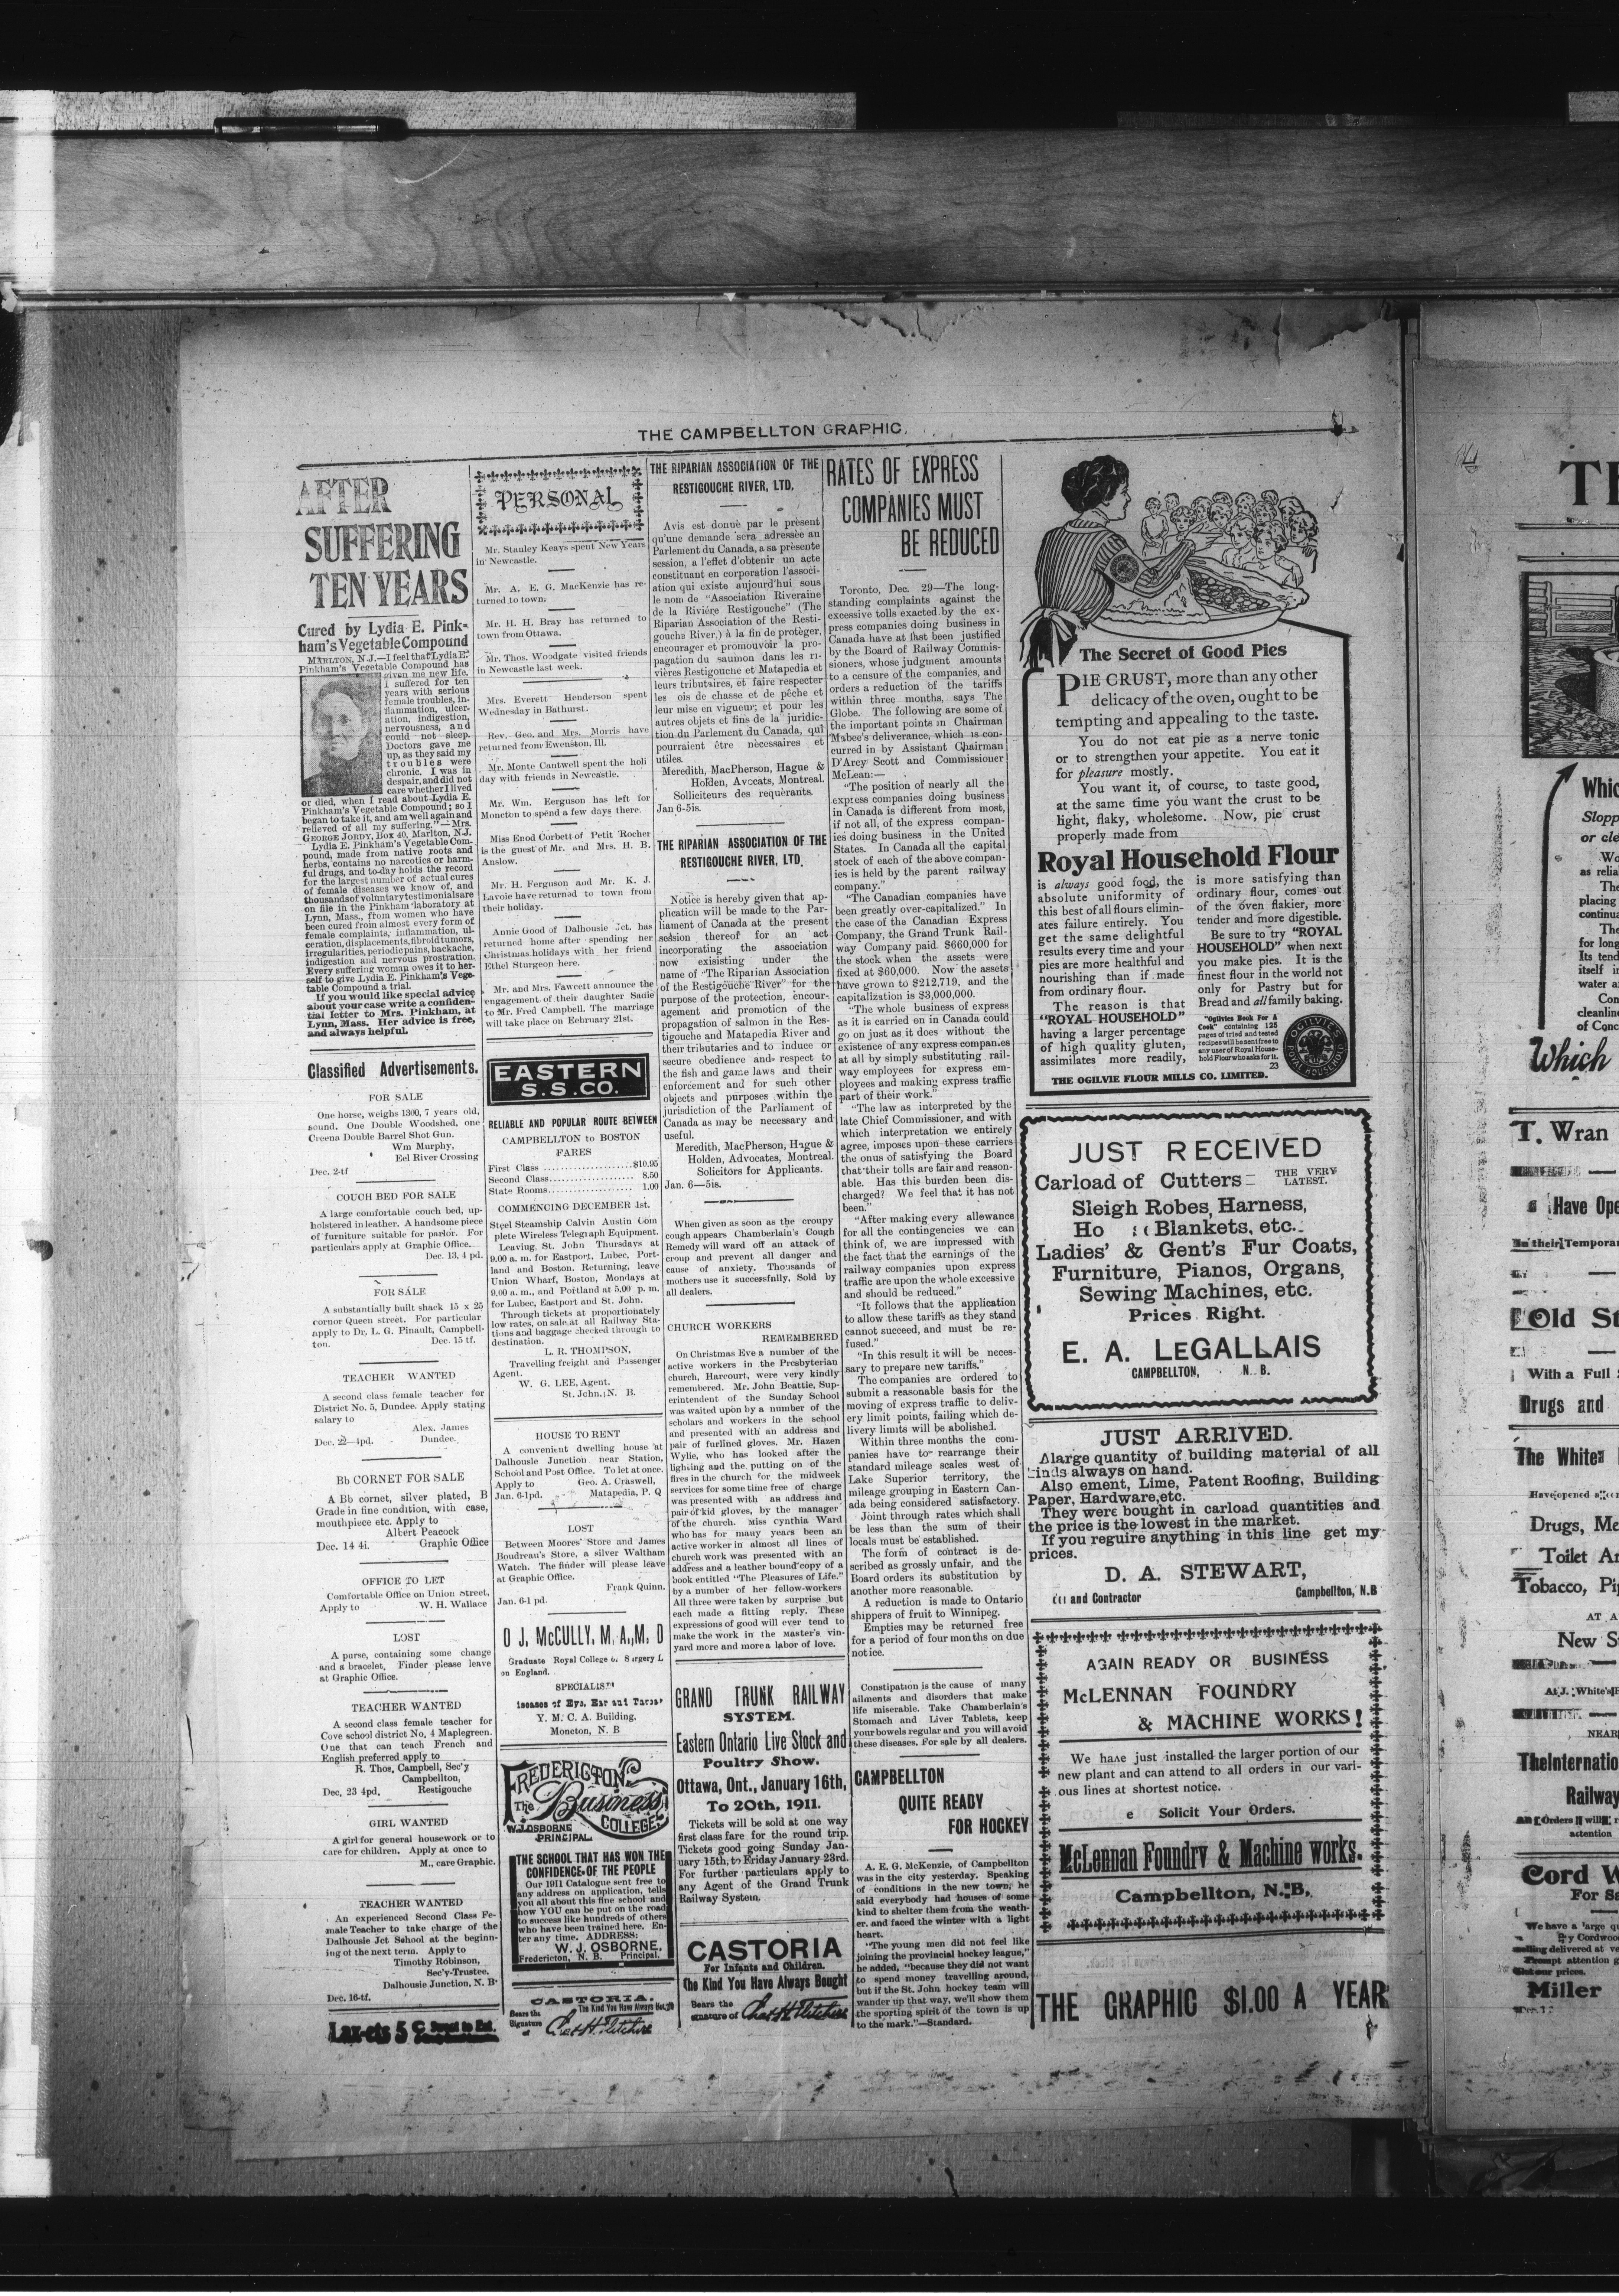 THE CAMPBELLTON GRAPHIC.
AFTER
SUFFERING
TEN YEARS
Cured by Lydia E. Pink-
ham's Vegetable Compound
MARLTON, N.J.—I feel that Lydia E.
Pinkham's Vegetable Compound has
given me new life.
I suffered for ten
years with serious
female troubles, in-
flammation, ulcer-
ation, indigestion,
nervousness, and
could not sleep.
Doctors gave me
up, as they said my
troubles were
chronic. I was in
despair, and did not
care whether I lived
or died, when I read about Lydia E.
Pinkham's Vegetable Compound; so I
began to take it, and am well again and
relieved of all my suffering."—Mrs.
GEORGE JORDY, Box 40, Marlton, N.J.
Lydia E. Pinkham's Vegetable Com-
pound, made from native roots and
herbs, contains no narcotics or harm-
ful drugs, and to-day holds the record
for the largest number of actual cures
of female diseases we know of, and
thousands of voluntary testimonials are
on file in the Pinkham laboratory at
Lynn, Mass., from women who have
been cured from almost every form of
female complaints, inflammation, ul-
ceration, displacements, fibroid tumors,
irregularities, periodic pains, backache,
indigestion and nervous prostration.
Every suffering woman owes it to her-
self to give Lydia E. Pinkham's Vege-
table Compound a trial.
If you would like special advice
about your case write a confiden-
tial letter to Mrs. Pinkham, at
Lynn, Mass. Her advice is free,
and always helpful.
Classified Advertisements.
FOR SALE
One horse, weighs 1300, 7 years old,
sound. One Double Woodshed, one
Creena Double Barrel Shot Gun.
Wm Murphy,
Eel River Crossing
Dec. 2-tf
COUCH BED FOR SALE
A large comfortable couch bed, up-
holstered in leather. A handsome piece
of furniture suitable for parlor. For
particulars apply at Graphic Office.
Dec. 13, 4 pd.
FOR SALE
A substantially built shack 15 x 25
cornor Queen street. For particular
apply to Dr, L. G. Pinault, Campbell-
ton. Dec. 15 tf.
TEACHER WANTED
A second class female teacher for
District No. 5, Dundee. Apply stating
salary to
Alex. James
Dec. 22—4pd. Dundee.
Bb CORNET FOR SALE
A Bb cornet, silver plated, B
Grade in fine condition, with case,
mouthpiece etc. Apply to
Albert Peacock
Dec. 14 4i. Graphic Office
OFFICE TO LET
Comfortable Office on Union Street,
Apply to W. H. Wallace
LOST
A purse, containing some change
and a bracelet, Finder please leave
at Graphic Office.
TEACHER WANTED
A second class female teacher for
Cove school district No, 4 Maplegreen.
One that can teach French and
English preferred apply to
R. Thos, Campbell, Sec'y
Campbellton,
Dec, 23 4pd, Restigouche
GIRL WANTED
A girl for general housework or to
care for children. Apply at once to
M., care Graphic.
TEACHER WANTED
An experienced Second Class Fe-
male Teacher to take charge of the
Dalhousie Jct School at the beginn-
ing of the next term. Apply to
Timothy Robinson,
Sec'y-Trustee.
Dalhousie Junction, N. B
Dec. 16-tf.
PERSONAL
Mr. Stanley Keays spent New Years
in Newcastle.
Mr. A. E. G. MacKenzie has re-
turned to town.
Mr. H. H. Bray has returned to
town from Ottawa.
Mr. Thos. Woodgate visited friends
in Newcastle last week.
Mrs. Everett Henderson spent
Wednesday in Bathurst.
Rev. Geo. and Mrs. Morris have
returned from Ewenston, Ill.
Mr. Monte Cantwell spent the holi
day with friends in Newcastle.
Mr. Wm. Eerguson has left for
Moncton to spend a few days there.
Miss Enod Corbett of Petit Rocher
is the guest of Mr. and Mrs. H. B.
Anslow.
Mr. H. Ferguson and Mr. K. J.
Lavoie have returned to town from
their holiday.
Annie Good of Dalhousie Jct. has
returned home after spending her
Christmas holidays with her friend
Ethel Sturgeon here.
Mr. and Mrs. Fawcett announce the
engagement of their daughter Sadie
to Mr. Fred Campbell. The marriage
will take place on Eebruary 21st.
EASTERN
S.S.CO.
RELIABLE AND POPULAR ROUTE BETWEEN
CAMPBELLTON to BOSTON
FARES
First Class ....................$10.95
Second Class................... 8.50
State Rooms................... 1.00
COMMENCING DECEMBER 1st.
Steel Steamship Calvin Austin Com
plete Wireless Telegraph Equipment.
Leaving St. John Thursdays at
9.00 a. m. for Eastport, Lubec, Port-
land and Boston. Returning, leave
Union Wharf, Boston, Mondays at
9.00 a. m., and Portland at 5.00 p. m.
for Lubec, Eastport and St. John.
Through tickets at proportionately
low rates, on sale at all Railway Sta-
tions and baggage checked through to
destination.
L. R. THOMPSON,
Travelling freight and Passenger
Agent.
W. G. LEE, Agent.
St. John, N. B.
HOUSE TO RENT
A convenient dwelling house at
Dalhousie Junction near Station,
School and Post Office. To let at once.
Apply to Geo. A. Craswell,
Jan. 6-1pd. Matapedia, P. Q
LOST
Between Moores' Store and James
Boudreau's Store, a silver Waltham
Watch. The finder will please leave
at Graphic Office.
Frank Quinn.
Jan. 6-1 pd.
O J. McCULLY, M. A., M. D
Graduate Royal College of Surgery L
on England.
SPECIALIST
Y. M. C. A. Building,
Moncton, N. B
FREDERICTON
The Business
COLLEGE
W.J.OSBORNE
PRINCIPAL.
THE SCHOOL THAT HAS WON THE
CONFIDENCE OF THE PEOPLE
Our 1911 Catalogue sent free to
any address on application, tells
you all about this fine school and
how YOU can be put on the road
to success like hundreds of others
who have been trained here. En-
ter any time. ADDRESS:
W. J. OSBORNE,
Fredericton, N. B. Principal.
CASTORIA.
Bears the The Kind You Have Always Bought
Signature
of Chas H. Fletcher
THE RIPARIAN ASSOCIATION OF THE
RESTIGOUCHE RIVER, LTD.
Avis est donuè par le present
qu'une demande sera adressèe au
Parlement du Canada, a sa prèsente
session, a l'effet d'obtenir un acte
constituant en corporation l'associ-
ation qui existe aujourd'hui sous
le nom de "Association Riveraine
de la Riviére Restigouche" (The
Riparian Association of the Resti-
gouche River,) à la fin de protèger,
encourager et promouvoir la pro-
pagation du saumon dans les ri-
vières Restigoucne et Matapedia et
leurs tributaires, et faire respecter
les ois de chasse et de pêche et
leur mise en vigueur; et pour les
autres objets et fins de la juridic-
tion du Parlement du Canada, qui
pourraient être nècessaires et
utiles.
Meredith, MacPherson, Hague &
Holden, Avceats, Montreal.
Solliciteurs des requèrants.
Jan 6-5is.
THE RIPARIAN ASSOCIATION OF THE
RESTIGOUCHE RIVER, LTD.
Notice is hereby given that ap-
plication will be made to the Par-
liament of Canada at the present
session thereof for an act
incorporating the association
now exisisting under the
name of "The Riparian Association
of the Restigouche River" for the
purpose of the protection, encour-
agement and promotion of the
propagation of salmon in the Res-
tigouche and Matapedia River and
their tributaries and to induce or
secure obedience and respect to
the fish and game laws and their
enforcement and for such other
objects and purposes within the
jurisdiction of the Parliament of
Canada as may be necessary and
useful.
Meredith, MacPherson, Hague &
Holden, Advocates, Montreal.
Solicitors for Applicants.
Jan. 6—5is.
When given as soon as the croupy
cough appears Chamberlain's Cough
Remedy will ward off an attack of
croup and prevent all danger and
cause of anxiety. Thousands of
mothers use it successfully. Sold by
all dealers.
CHURCH WORKERS
REMEMBERED
On Christmas Eve a number of the
active workers in the Presbyterian
church, Harcourt, were very kindly
remembered. Mr. John Beattie, Sup-
erintendent of the Sunday School
was waited upon by a number of the
scholars and workers in the school
and presented with an address and
pair of furlined gloves. Mr. Hazen
Wylie, who has looked after the
lighting and the putting on of the
fires in the church for the midweek
services for some time free of charge
was presented with an address and
pair of kid gloves, by the manager
of the church. Miss Cynthia Ward
who has for many years been an
active worker in almost all lines of
church work was presented with an
address and a leather bound copy of a
book entitled "The Pleasures of Life."
by a number of her fellow-workers
All three were taken by surprise but
each made a fitting reply. These
expressions of good will ever tend to
make the work in the Master's vin-
yard more and more a labor of love.
GRAND TRUNK RAILWAY
SYSTEM.
Eastern Ontario Live Stock and
Poultry Show.
Ottawa, Ont., January 16th,
To 20th, 1911.
Tickets will be sold at one way
first class fare for the round trip.
Tickets good going Sunday Jan-
uary 15th, to Friday January 23rd.
For further particulars apply to
any Agent of the Grand Trunk
Railway System.
CASTORIA
For Infants and Children.
The Kind You Have Always Bought
Bears the
Signature of Chas H. Fletcher
RATES OF EXPRESS
COMPANIES MUST
BE REDUCED
Toronto, Dec. 29—The long-
standing complaints against the
excessive tolls exacted by the ex-
press companies doing business in
Canada have at last been justified
by the Board of Railway Commis-
sioners, whose judgment amounts
to a censure of the companies, and
orders a reduction of the tariffs
within three months, says The
Globe. The following are some of
the important points in Chairman
Mabee's deliverance, which is con-
curred in by Assistant Chairman
D'Arcy Scott and Commissioner
McLean:—
"The position of nearly all the
express companies doing business
in Canada is different from most,
if not all, of the express compan-
ies doing business in the United
States. In Canada all the capital
stock of each of the above compan-
ies is held by the parent railway
company."
"The Canadian companies have
been greatly over-capitalized." In
the case of the Canadian Express
Company, the Grand Trunk Rail-
way Company paid $660,000 for
the stock when the assets were
fixed at $60,000. Now the assets
have grown to $212,719, and the
capitalization is $3,000,000.
"The whole business of express
as it is carried on in Canada could
go on just as it does without the
existence of any express companies
at all by simply substituting rail-
way employees for express em-
ployees and making express traffic
part of their work."
"The law as interpreted by the
late Chief Commissioner, and with
which interpretation we entirely
agree, imposes upon these carriers
the onus of satisfying the Board
that their tolls are fair and reason-
able. Has this burden been dis-
charged? We feel that it has not
been."
"After making every allowance
for all the contingencies we can
think of, we are impressed with
the fact that the earnings of the
railway companies upon express
traffic are upon the whole excessive
and should be reduced."
"It follows that the application
to allow these tariffs as they stand
cannot succeed, and must be re-
fused."
"In this result it will be neces-
sary to prepare new tariffs."
The companies are ordered to
submit a reasonable basis for the
moving of express traffic to deliv-
ery limit points, failing which de-
livery limits will be abolished.
Within three months the com-
panies have to rearrange their
standard mileage scales west of
Lake Superior territory, the
mileage grouping in Eastern Can-
ada being considered satisfactory.
Joint through rates which shall
be less than the sum of their
locals must be established.
The form of contract is de-
scribed as grossly unfair, and the
Board orders its substitution by
another more reasonable.
A reduction is made to Ontario
shippers of fruit to Winnipeg.
Empties may be returned free
for a period of four months on due
notice.
Constipation is the cause of many
ailments and disorders that make
life miserable. Take Chamberlain's
Stomach and Liver Tablets, keep
your bowels regular and you will avoid
these diseases. For sale by all dealers.
CAMPBELLTON
QUITE READY
FOR HOCKEY
A. E. G. McKenzie, of Campbellton
was in the city yesterday. Speaking
of conditions in the new town, he
said everybody had houses of some
kind to shelter them from the weath-
er. and faced the winter with a light
heart.
"The young men did not feel like
joining the provincial hockey league,"
he added, "because they did not want
to spend money travelling around,
but if the St. John hockey team will
wander up that way, we'll show them
the sporting spirit of the town is up
to the mark."—Standard.
The Secret of Good Pies
PIE CRUST, more than any other
delicacy of the oven, ought to be
tempting and appealing to the taste.
You do not eat pie as a nerve tonic
or to strengthen your appetite. You eat it
for pleasure mostly.
You want it, of course, to taste good,
at the same time you want the crust to be
light, flaky, wholesome. Now, pie crust
properly made from
Royal Household Flour
is always good food, the
absolute uniformity of
this best of all flours elimin-
ates failure entirely. You
get the same delightful
results every time and your
pies are more healthful and
nourishing than if made
from ordinary flour.
The reason is that
"ROYAL HOUSEHOLD"
having a larger percentage
of high quality gluten,
assimilates more readily,
is more satisfying than
ordinary flour, comes out
of the oven flakier, more
tender and more digestible.
Be sure to try "ROYAL
HOUSEHOLD" when next
you make pies. It is the
finest flour in the world not
only for Pastry but for
Bread and all family baking.
"Ogilvies Book For A
Cook" containing 125
pages of tried and tested
recipes will be sent free to
any user of Royal House-
hold Flour who asks for it.
23
OGILVIE'S
ROYAL HOUSEHOLD
THE OGILVIE FLOUR MILLS CO. LIMITED.
JUST RECEIVED
Carload of Cutters = THE VERY
LATEST.
Sleigh Robes, Harness,
Ho Blankets, etc.
Ladies' & Gent's Fur Coats,
Furniture, Pianos, Organs,
Sewing Machines, etc.
Prices Right.
E. A. LEGALLAIS
CAMPBELLTON, N. B.
JUST ARRIVED.
A large quantity of building material of all
kinds always on hand.
Also ement, Lime, Patent Roofing, Building
Paper, Hardware, etc.
They were bought in carload quantities and
the price is the lowest in the market.
If you reguire anything in this line get my
prices.
D. A. STEWART,
and Contractor Campbellton, N.B
AGAIN READY OR BUSINESS
McLENNAN FOUNDRY
& MACHINE WORKS!
We have just installed the larger portion of our
new plant and can attend to all orders in our vari-
ous lines at shortest notice.
e Solicit Your Orders.
McLennan Foundry & Machine works.
Campbellton, N. B.
THE GRAPHIC $1.00 A YEAR
Which
Slopp
or cle
Wo
as relia
placing
continu
The
for long
Its tend
itself in
water a
Con
cleanline
of Conc
Which
T. Wran
Have Ope
in their Tempora
Old St
With a Full
Drugs and
The White
Drugs, Me
Toilet Ar
Tobacco, Pi
AT A
New S
At J. White's
NEAR
The Internatio
Railway
attention
Cord W
For Sa
We have a large qu
Cordwood
delivered at
attention
prices.
Miller